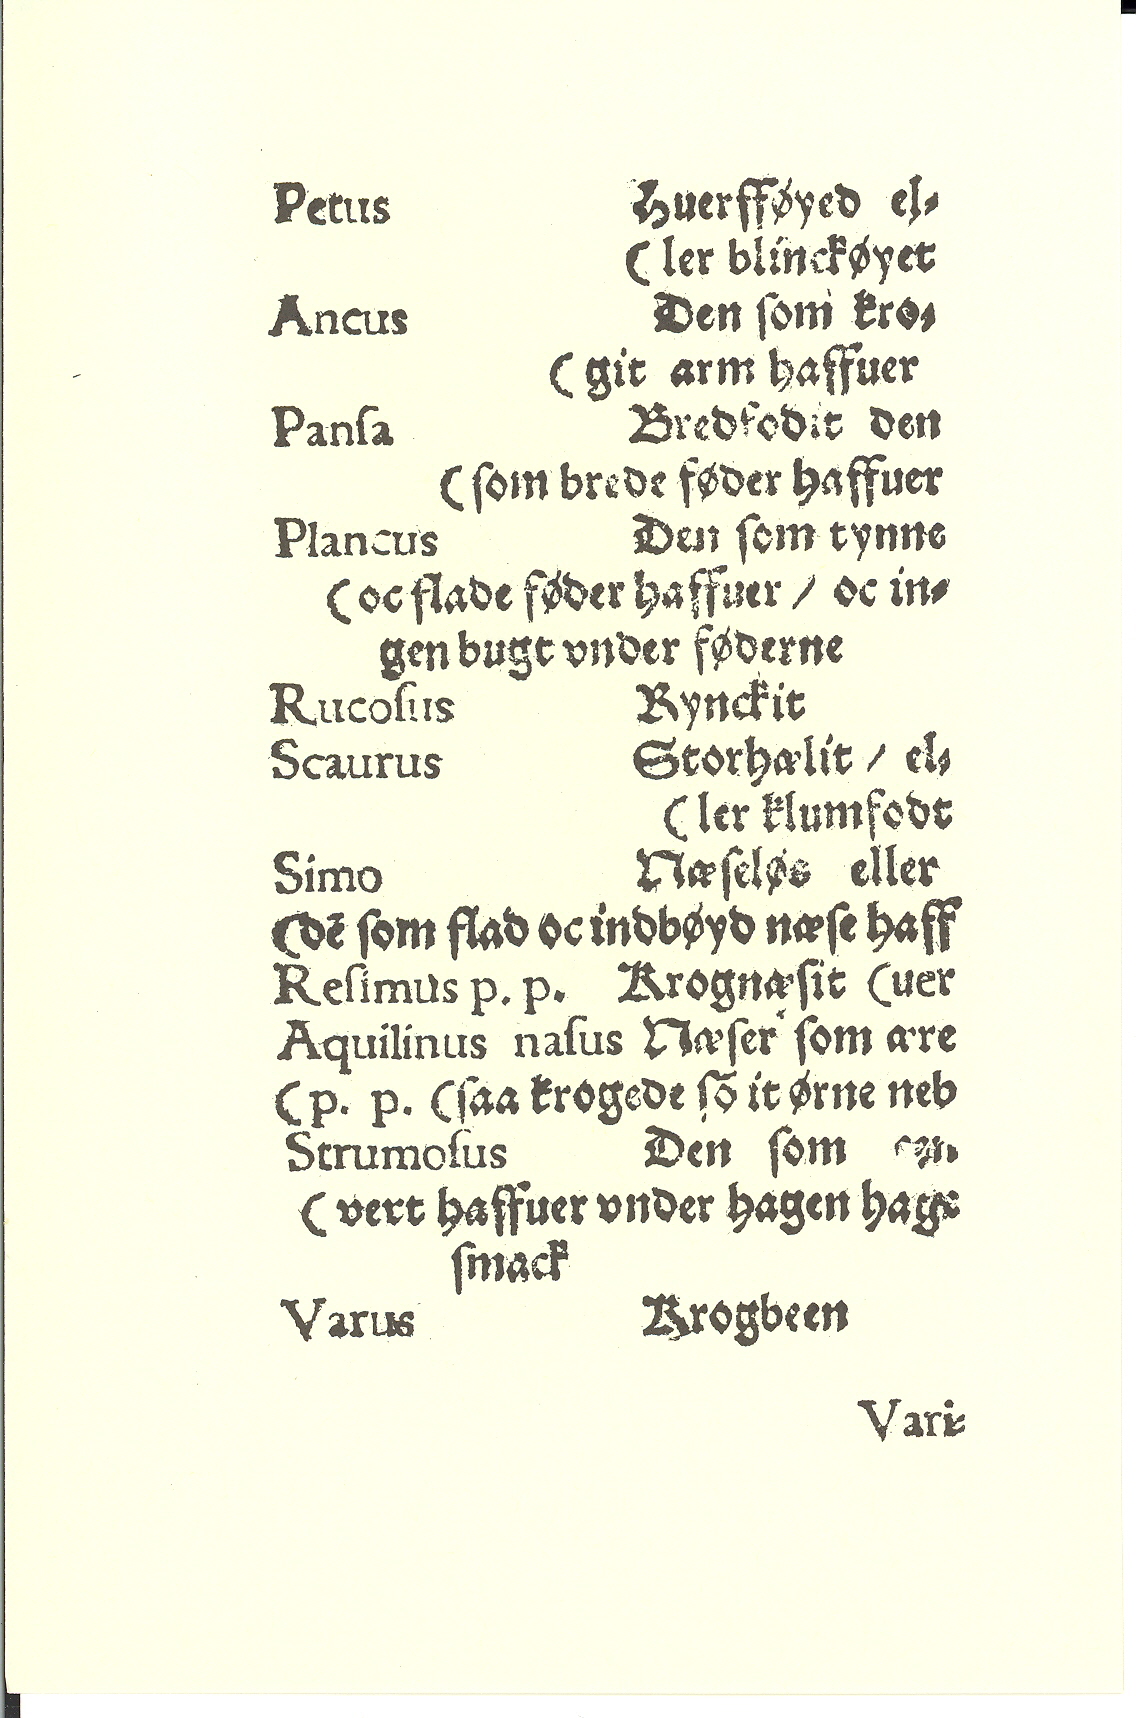 Petus Huerfføyed el⸗
( ler blinckøyet
Ancus Den ſom kro⸗
( git arm haffuer
Panſa Bredfodit den
( ſom brede føder haffuer
Plancus Den ſom tynne
( oc flade føder haffuer / oc in⸗
gen bugt vnder føderne
Rucoſus Rynckit
Scaurus Storhælit / el⸗
( ler klumfodt
Simo Næſeløs eller
(dē ſom flad oc indbøyd næſe haff
Reſimus p. p. Krognæſit (uer
Aquilinus naſus Næſer ſom ære
( p. p. (ſaa krogede ſō it ørne neb
Strumoſus Den ſom
( vert haffuer vnder hagen
ſmack
Varus Krogbeen
Vari⸗